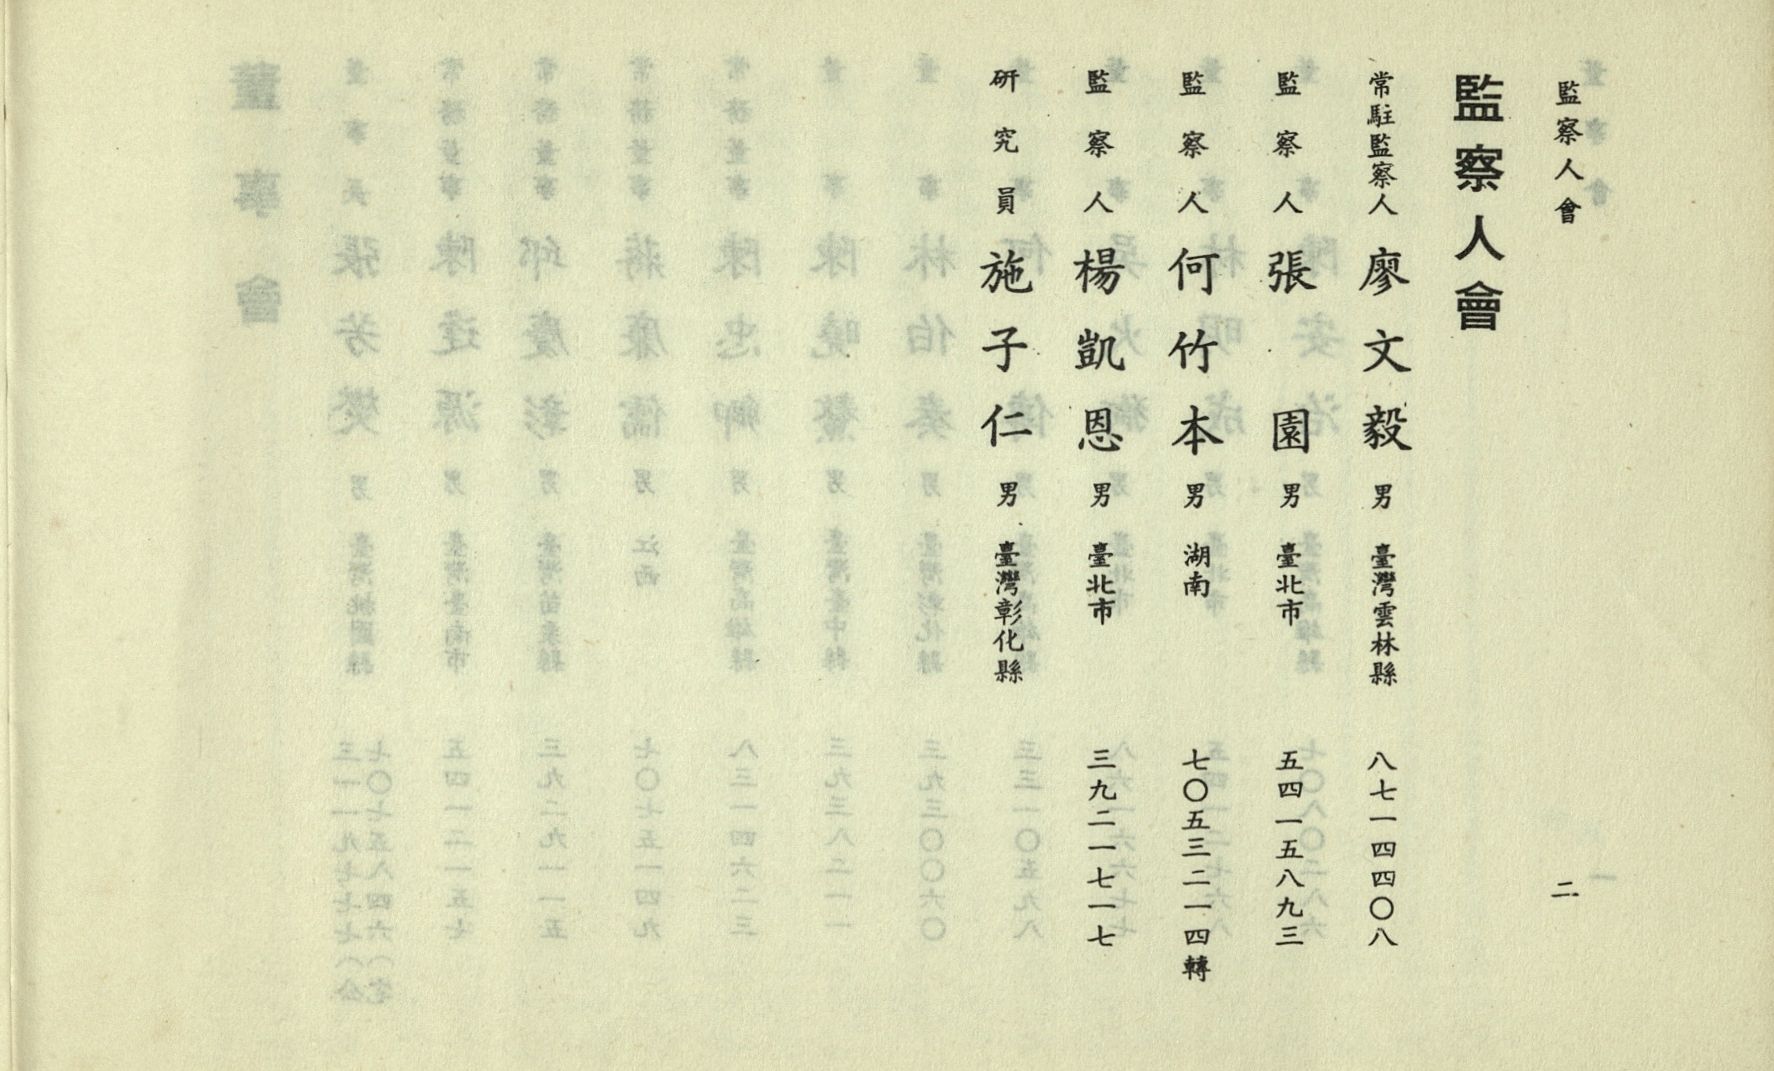 監察人會
二
監察人會
常駐監察人 廖文毅 男 臺灣雲林縣 八七一四四〇八
監察人 張園 男 臺北市 五四一五八九三
監察人 何竹本 男 湖南 七〇五三二一四轉
監察人 楊凱恩 男 臺北市 三九二一七一七
研究員 施子仁 男 臺灣彰化縣